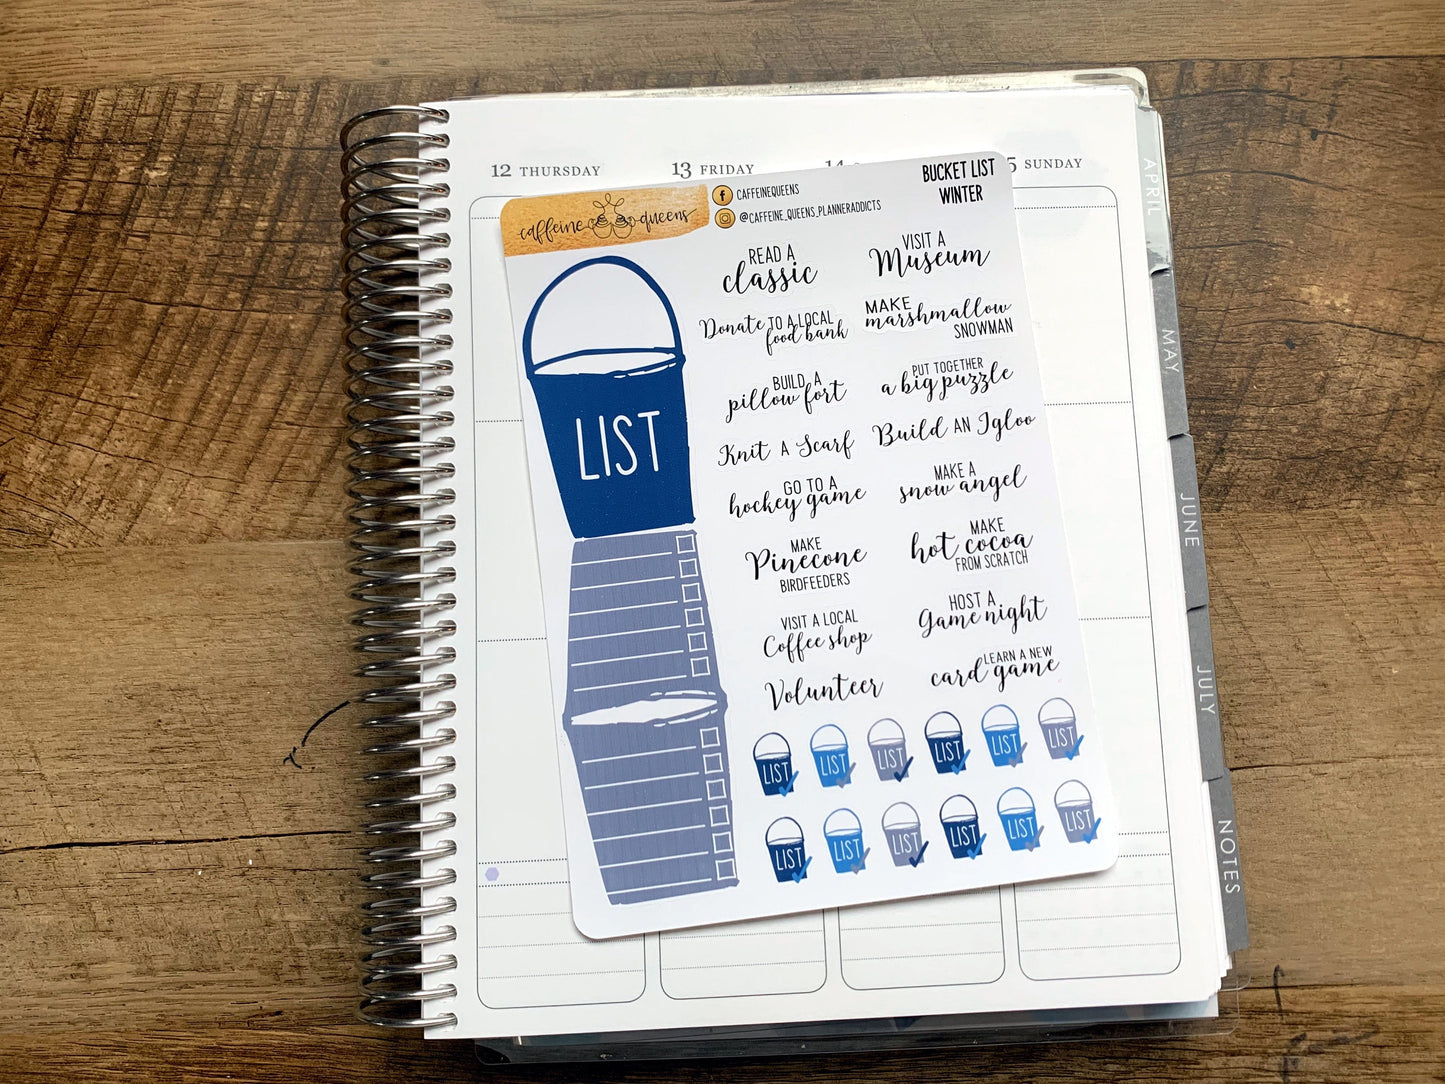 12 THURSDAY
13 FRIDAY
14
5 SUNDAY
caffeine queens
CAFFEINEQUEENS
@CAFFEINE_QUEENS_PLANNERADDICTS
BUCKET LIST
WINTER
LIST
READ A
classic
VISIT A
Museum
Donate TO A LOCAL
food bank
MAKE
marshmallow
SNOWMAN
BUILD A
pillow fort
PUT TOGETHER
a big puzzle
Knit A Scarf
Build AN Igloo
GO TO A
hockey game
MAKE A
snow angel
MAKE
Pinecone
BIRDFEEDERS
MAKE
hot cocoa
FROM SCRATCH
VISIT A LOCAL
Coffee shop
HOST A
Game night
Volunteer
LEARN A NEW
card game
LIST LIST LIST LIST LIST LIST
LIST LIST LIST LIST LIST LIST
APRIL
MAY
JUNE
JULY
NOTES